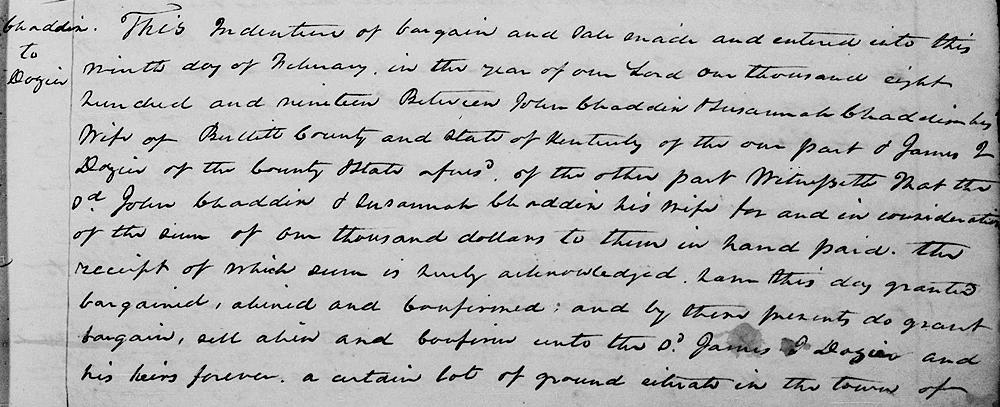 Chaddin
to
Dozier
This Indenture of bargain and sale made and entered into this
ninth day of February. in the year of our Lord one thousand eight
hundred and nineteen Between John Chaddin & Susannah Chaddin his
Wife of Bullitt County and State of Kentucky of the one part & James I
Dozier of the County & State afores.d of the other part Witnesseth That the
s.d John Chaddin & Susannah Chaddin his wife for and in consideration
of the sum of one thousand dollars to them in hand paid. the
receipt of which sum is hereby acknowledged. have this day granted
bargained, aliened and confirmed; and by these presents do grant
bargain, sell alien and confirm unto the s.d James I Dozier and
his heirs forever. a certain lot of ground situate in the town of